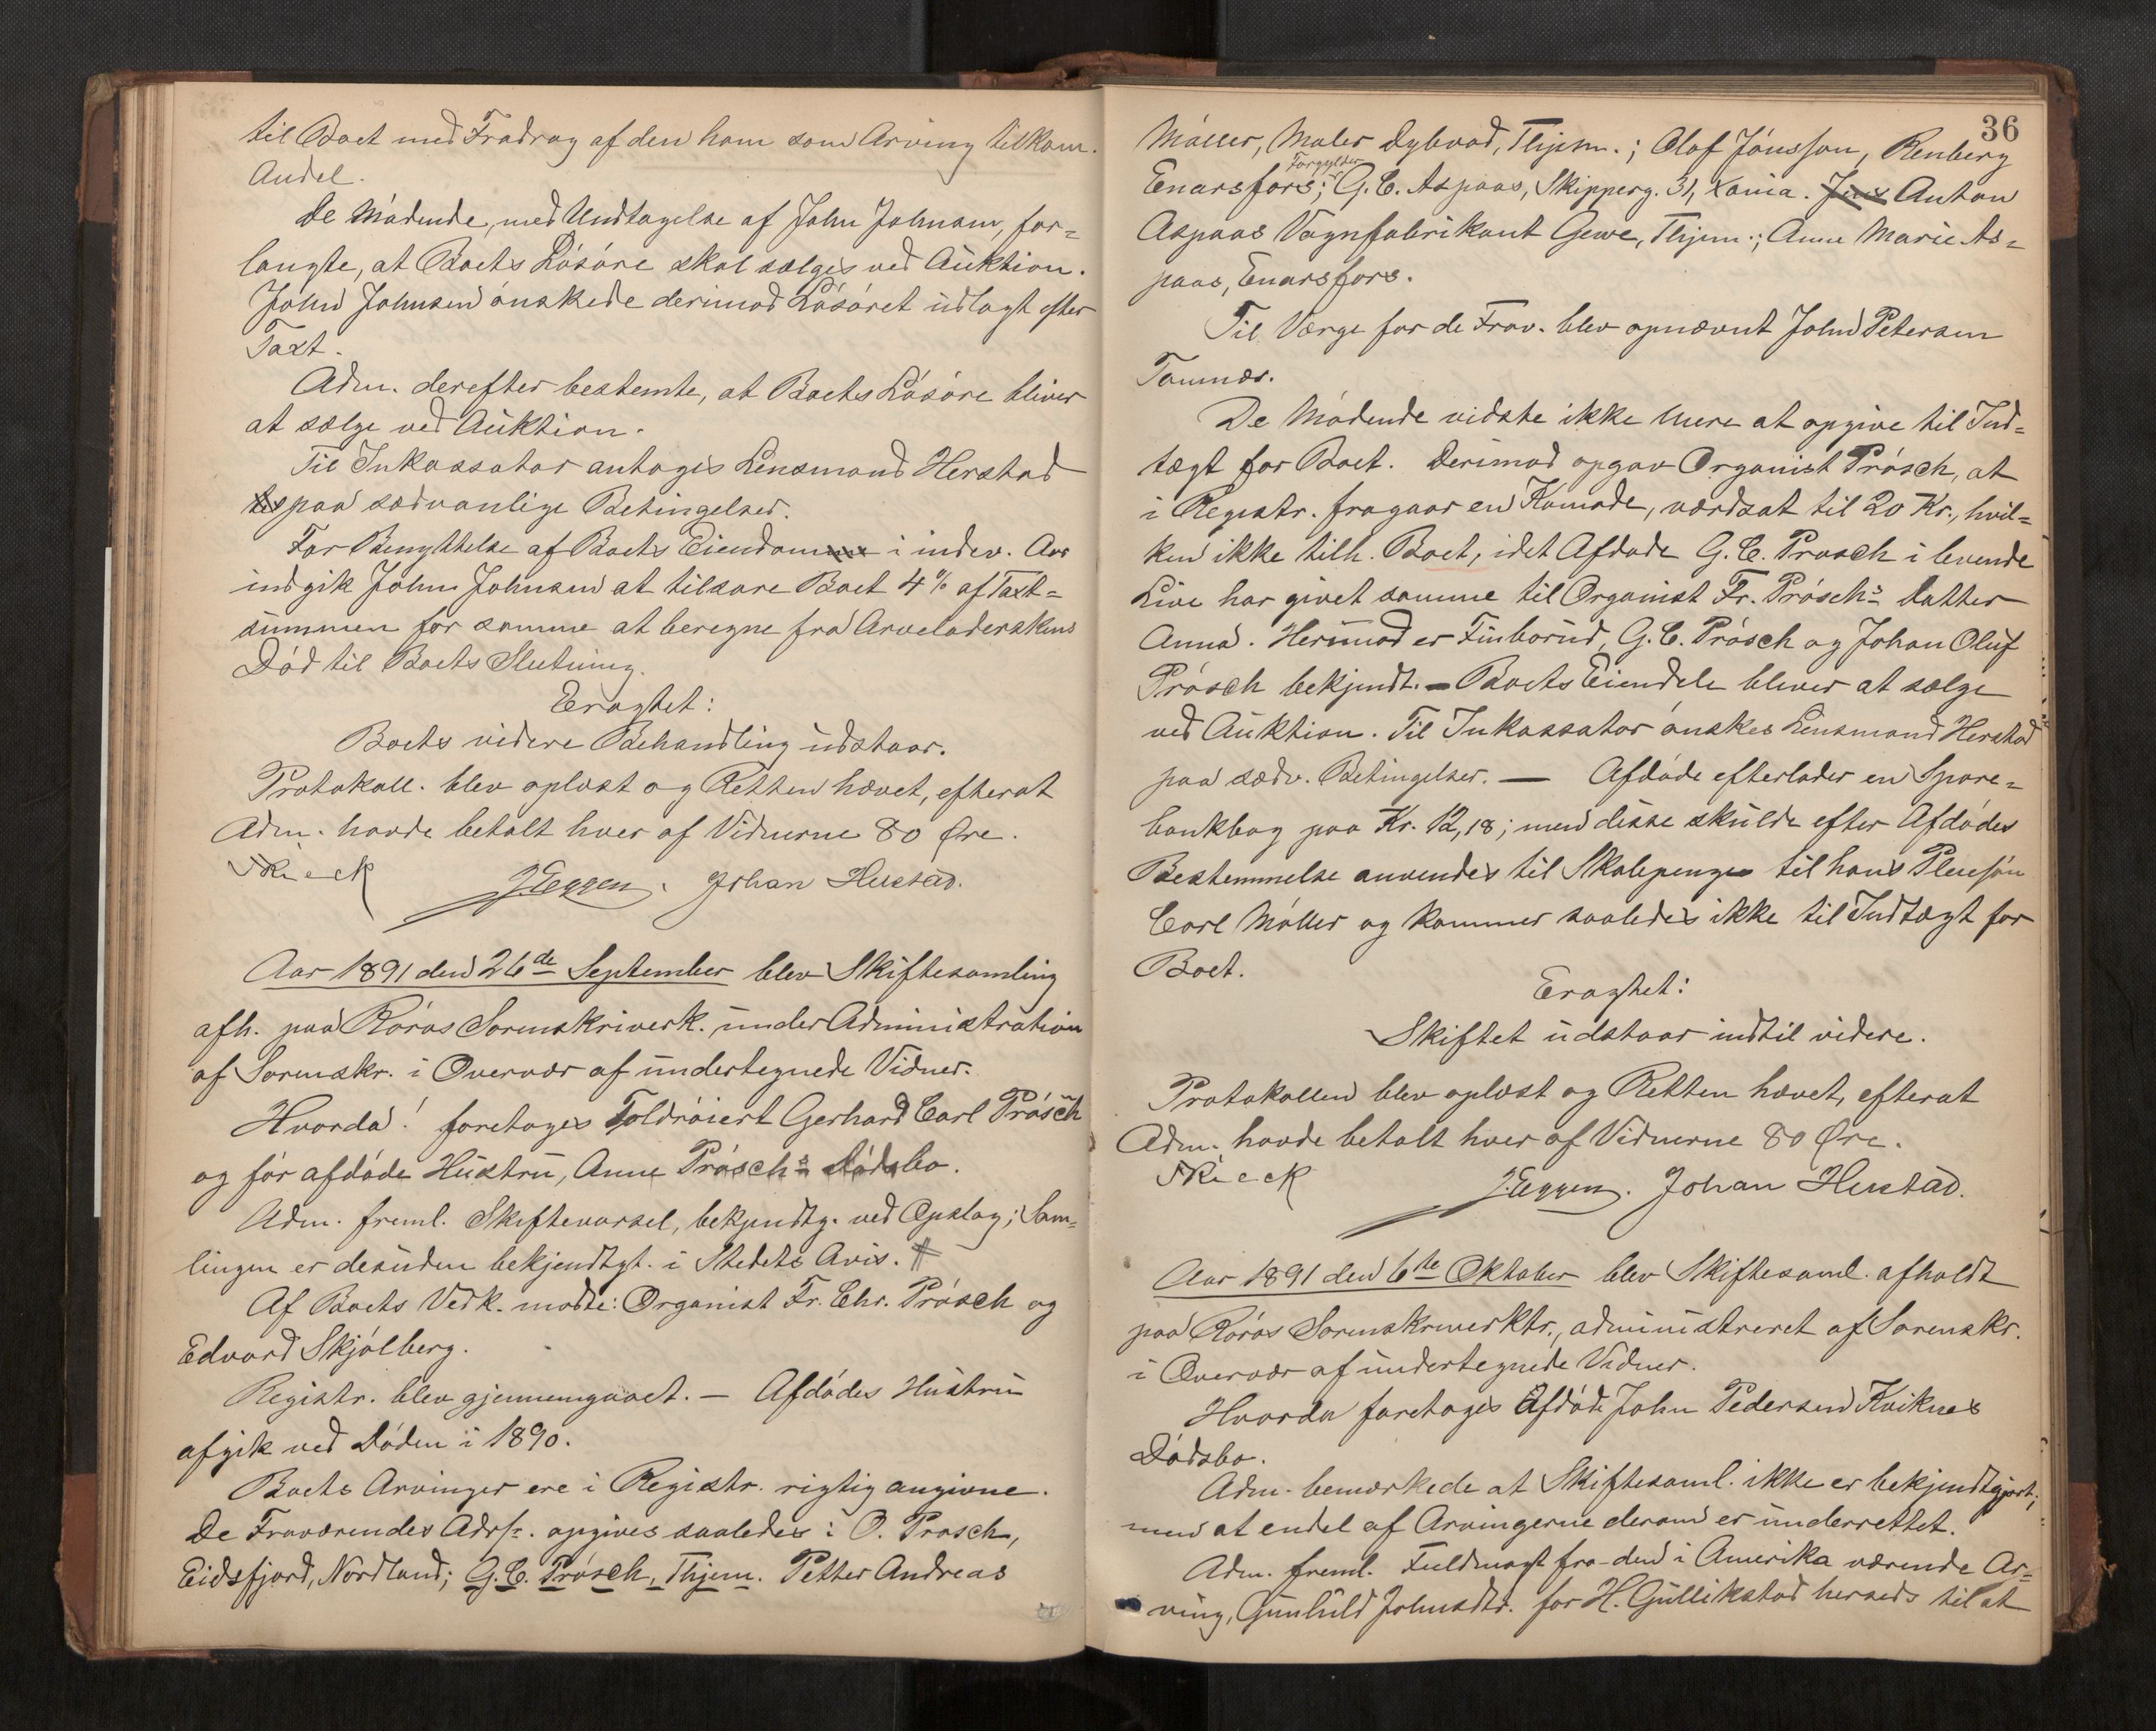 til Boet med Fradrag af den ham som Arving tilkom.
Andel.
De Mødende, med Undtagelse af John Johnsen, for-
langte, at Boets Løsøre skal sælges ved Auktion.
John Johnsen ønskede derimod Løsøret udlagt efter
Taxt.
Adm. derefter bestemte, at Boets Løsøre bliver
at sælge ved Auktion.
Til Inkassator antages Lensmand Herstad
paa sædvanlige Betingelser.
For Benyttelse af Boets Eiendom i indev. Aar
indgik John Johnsen at tilsvare Boet 4 % af Taxt-
summen for samme at beregne fra Arveladerskens
Død til Boets Slutning.
Eragtet:
Boets videre Behandling udstaar.
Protokoll. blev oplæst og Retten hævet, efterat
Adm. havde betalt hver af Vidnerne 80 Øre.
Rieck
J Eggen. Johan Hustad.
Aar 1891 den 26de September blev Skiftesamling
afh. paa Røros Sorenskriverk. under Administration
af Sorenskr. i Overvær af undertegnede Vidner.
Hvorda! foretages Toldrøiert Gerhard Carl Prøsch
og før afdøde Hustru, Anne Prøsch's Dødsbo.
Adm. freml. Skiftevarsel, bekjendtg. ved Opslag; Sam-
lingen er desuden bekjendtgt. i Stedets Avis. #
Af Boets Vedk. mødte: Organist Fr. Chr. Prøsch og
Edvard Skjølberg.
Registr. blev gjennemgaaet. — Afdødes Hustru
afgik ved Døden i 1890.
Boets Arvinger ere i Registr. rigtig angivne.
De Fraværendes Adrs. opgives saaledes: O. Prøsch,
Eidsfjord, Nordland; G. C. Prøsch, Thjem. Petter Andreas
36
Møller, Maler Dybvad, Thjem.; Olof Jönsson, Renberg
Forgylder
Enarsfors; G. C. Aspaas, Skipperg. 31, Xania. Jens Anton
Aspaas Vognfabrikant Gewe, Thjem.; Anne Marie As-
paas, Enarsfors.
Til Værge for de Frav. blev opnævnt John Petersen
Tamnæs.
De Mødende vidste ikke mere at opgive til Ind-
tægt for Boet. Derimod opgav Organist Prøsch, at
i Registr. fragaar en Komode, værdsat til 20 Kr., hvil-
ken ikke tilh. Boet, idet Afdøde G. C. Prøsch i levende
Live har givet samme til Organist Fr. Prøsch's Datter
Anna. Herimod er Finborud, G. C. Prøsch og Johan Oluf
Prøsch bekjendt. — Boets Eiendele bliver at sælge
ved Auktion. Til Inkassator ønskes Lensmand Herstad
paa sædv. Betingelser. — Afdøde efterlader en Spare-
bankbog paa Kr. 12,18; men disse skulde efter Afdødes
Bestemmelse anvendes til Skolepenge til hans Pleiesøn
Carl Møller og kommer saaledes ikke til Indtægt for
Boet.
Eragtet:
Skiftet udstaar indtil videre.
Protokollen blev oplæst og Retten hævet, efterat
Adm. havde betalt hver af Vidnerne 80 Øre.
Rieck
J Eggen. Johan Hustad.
Aar 1891 den 6te Oktober blev Skiftesaml. afholdt
paa Røros Sorenskriverktr., administreret af Sorenskr.
i Overvær af undertegnede Vidner.
Hvorda foretages Afdøde John Pedersen Kviknes
Dødsbo.
Adm. bemærkede at Skiftesaml. ikke er bekjendtgjort;
men at endel af Arvingerne derom er underrettet.
Adm. freml. Fuldmagt fra den i Amerika værende Ar-
ving, Gunhild Johnsdtr. for H. Gullikstad herseds til at